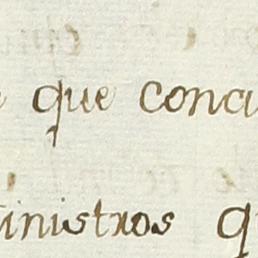 que concu
inistros q